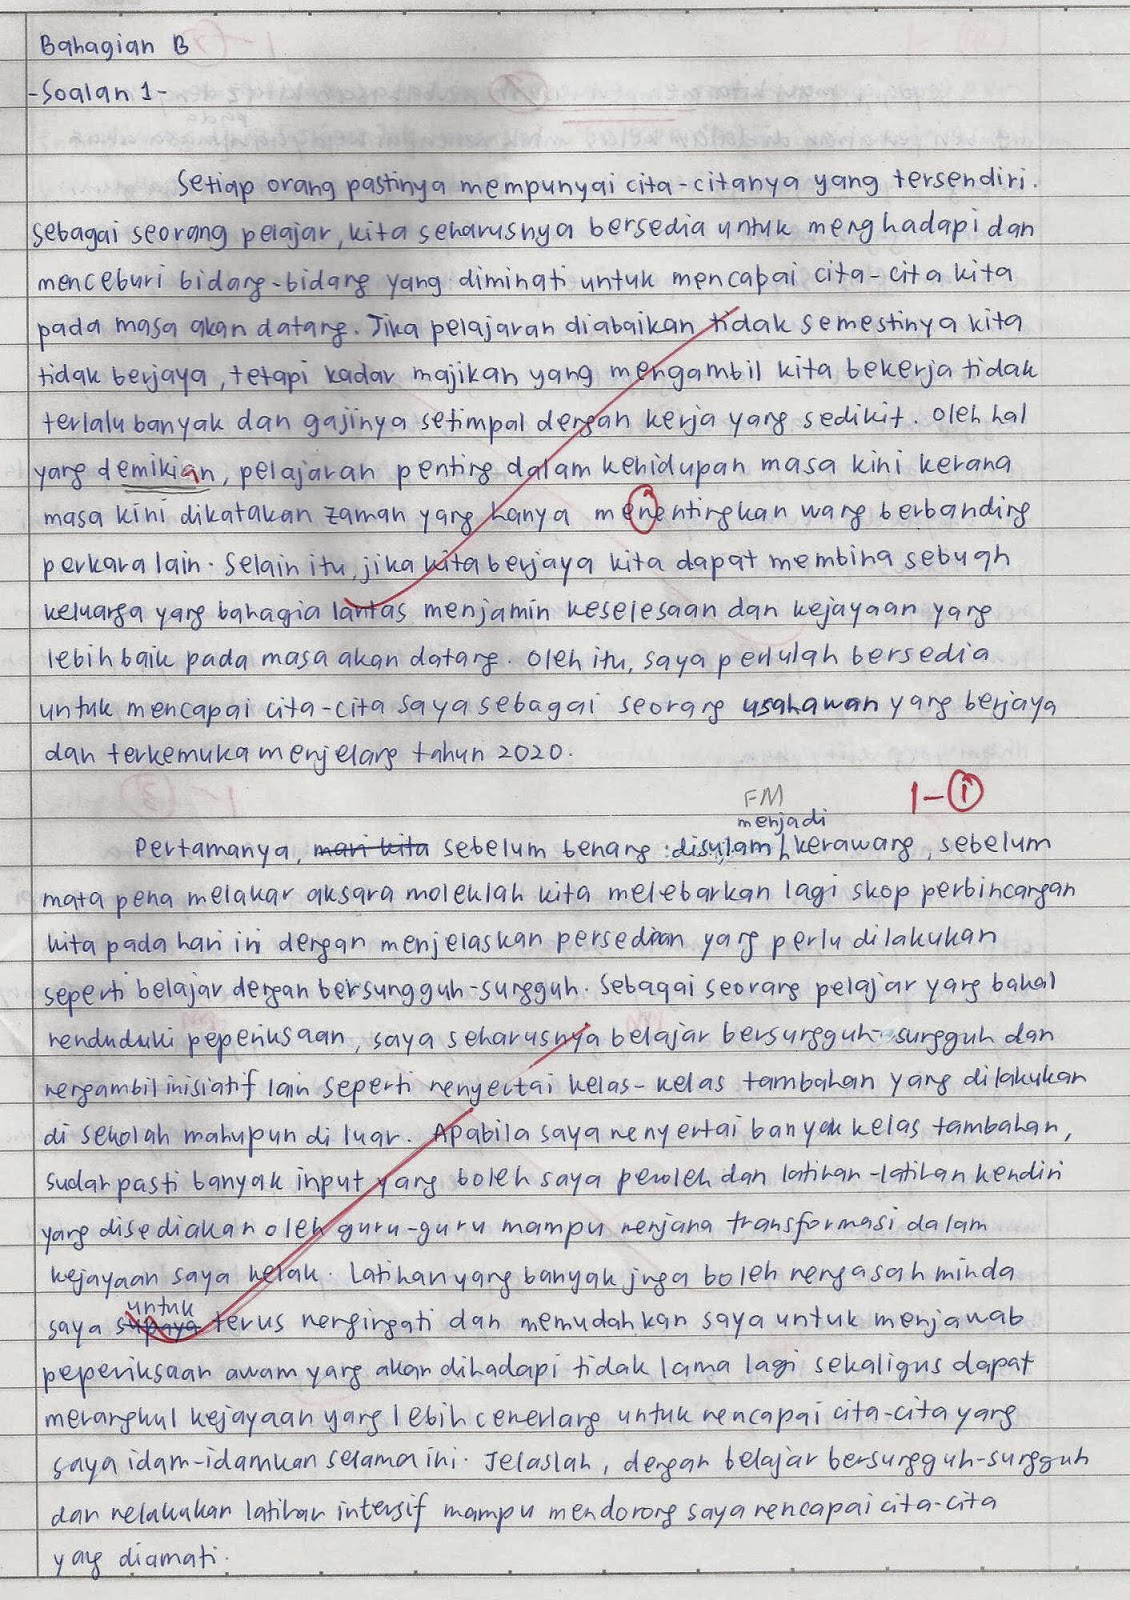 Bahagian B
-Soalan 1-
Setiap orang pastinya mempunyai cita-citanya yang tersendiri.
Sebagai seorang pelajar, kita seharusnya bersedia untuk menghadapi dan
menceburi bidang-bidang yang diminati untuk mencapai cita-cita kita
pada masa akan datang. Jika pelajaran diabaikan tidak semestinya kita
tidak berjaya, tetapi kadar majikan yang mengambil kita bekerja tidak
terlalu banyak dan gajinya setimpal dengan kerja yang sedikit. Oleh hal
yang demikian, pelajaran penting dalam kehidupan masa kini kerana
masa kini dikatakan zaman yang hanya menentingkan wang berbanding
perkara lain. Selain itu, jika kita berjaya kita dapat membina sebuah
keluarga yang bahagia lantas menjamin keselesaan dan kejayaan yang
lebih baik pada masa akan datang. Oleh itu, saya perlulah bersedia
untuk mencapai cita-cita saya sebagai seorang usahawan yang berjaya
dan terkemuka menjelang tahun 2020.
1-(i)
FM
menjadi
Pertamanya, mari kita sebelum benang disulam kerawang, sebelum
mata pena melakar aksara moleklah kita melebarkan lagi skop perbincangan
kita pada hari ini dengan menjelaskan persediaan yang perlu dilakukan
seperti belajar dengan bersungguh-sungguh. Sebagai seorang pelajar yang bakal
menduduki peperiksaan, saya seharusnya belajar bersungguh-sungguh dan
mengambil inisiatif lain seperti menyertai kelas-kelas tambahan yang dilakukan
di sekolah mahupun di luar. Apabila saya menyertai banyak kelas tambahan,
sudah pasti banyak input yang boleh saya peroleh dan latihan-latihan kendiri
yang disediakan oleh guru-guru mampu menjana transformasi dalam
kejayaan saya kelak. Latihan yang banyak juga boleh mengasah minda
untuk
saya supaya terus mengingati dan memudahkan saya untuk menjawab
peperiksaan awam yang akan dihadapi tidak lama lagi sekaligus dapat
merangkul kejayaan yang lebih cemerlang untuk mencapai cita-cita yang
saya idam-idamkan selama ini. Jelaslah, dengan belajar bersungguh-sungguh
dan melakukan latihan intensif mampu mendorong saya mencapai cita-cita
yang diamati.